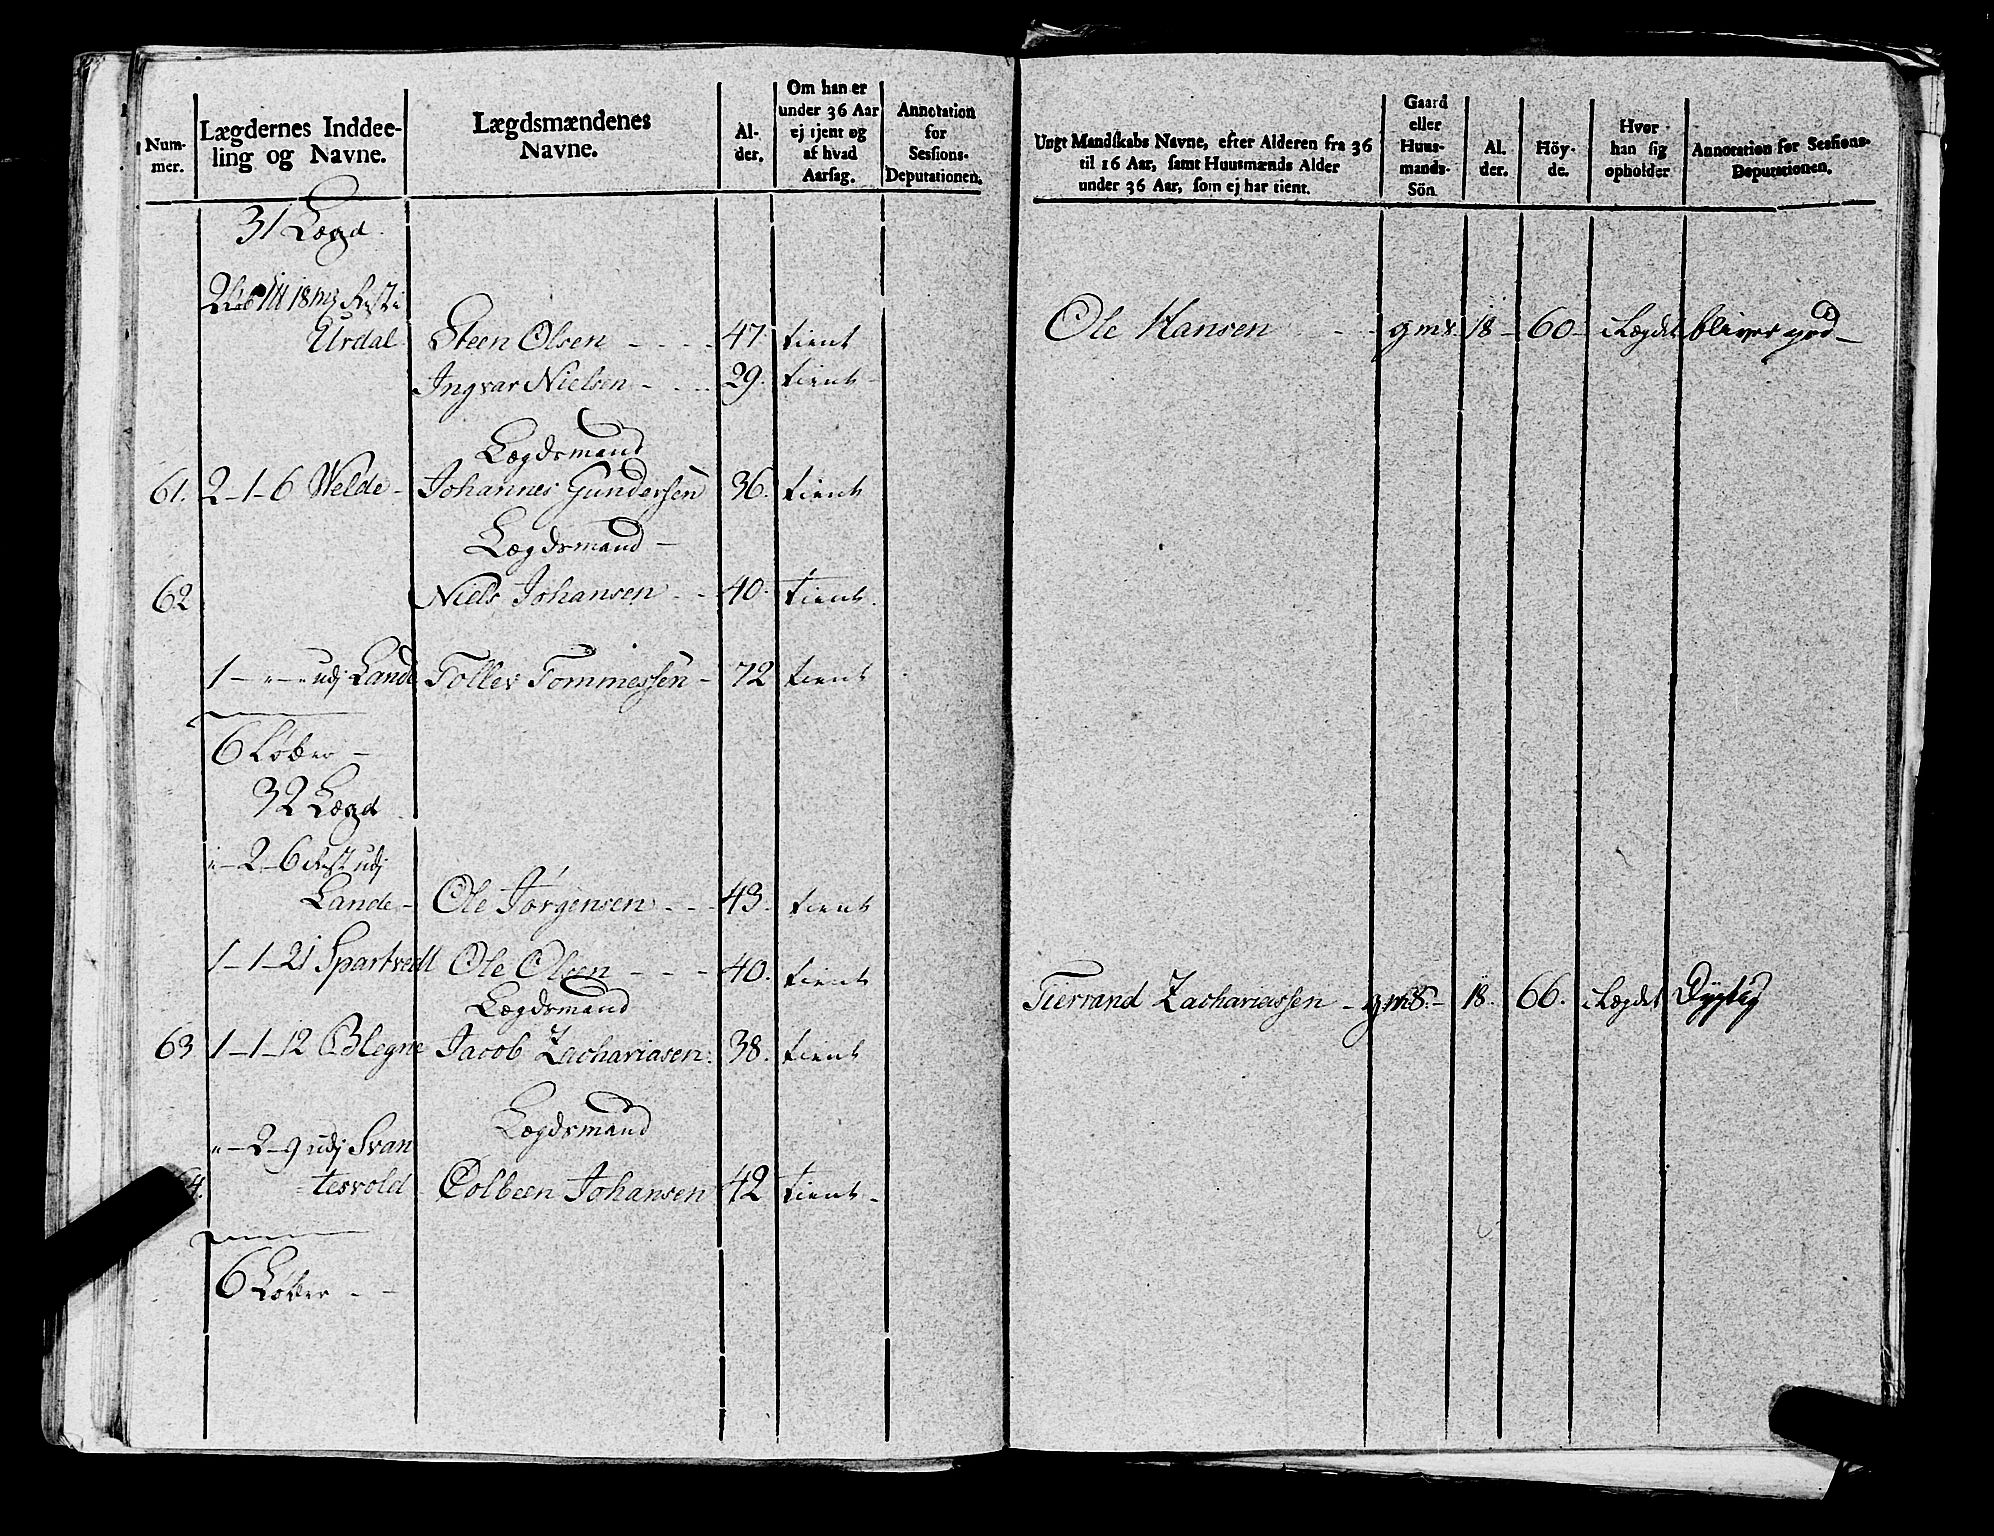 Num-
mer.
Lægdernes Inddee-
ling og Navne.
Lægdsmændenes
Navne.
Al-
der.
Om han er
under 36 Aar
ej tjent og
af hvad
Aarsag.
Annotation
for
Sessions-
Deputationen.
31 Lægd
Urdal Steen Olsen - - - - 47. tient
Ingvar Nielsen - - - 29. tient -
Lægdsmand
61. 2-1-6 Welde - Johannes Gundersen 36. tient
Lægdsmand -
62 Niels Johansen - - 40. tient.
1 - " - " udj Lande Tollev Tommessen - 72 tient
6 Løber -
32 Lægd
" - 2 - 6 Rest udj
Lande - Ole Jørgensen - - - 43. tient
1-1-21 Spartvedt Ole Olsen - - - 40. tient
Lægdsmand
63 1-1-12 Blegne Jacob Zachariasen. 38. tient
Lægdsmand
" - 2 - 9 udj Svan
tesvold Colbeen Johansen 42 tient -
6 Løber - -
Ungt Mandskabs Navne, efter Alderen fra 36
til 16 Aar, samt Huusmænds Alder
under 36 Aar, som ej har tient.
Gaard
eller
Huus-
mands-
Sön.
Al.
der.
Höy-
de.
Hvor
han sig
opholder
Annotation for Sessions-
Deputationen.
Ole Hansen - - - gms. 18 - 60 - i Lægdet bliver god -
Tierrand Zachariassen - gms. - 18. 66. i Lægdet Dygtig